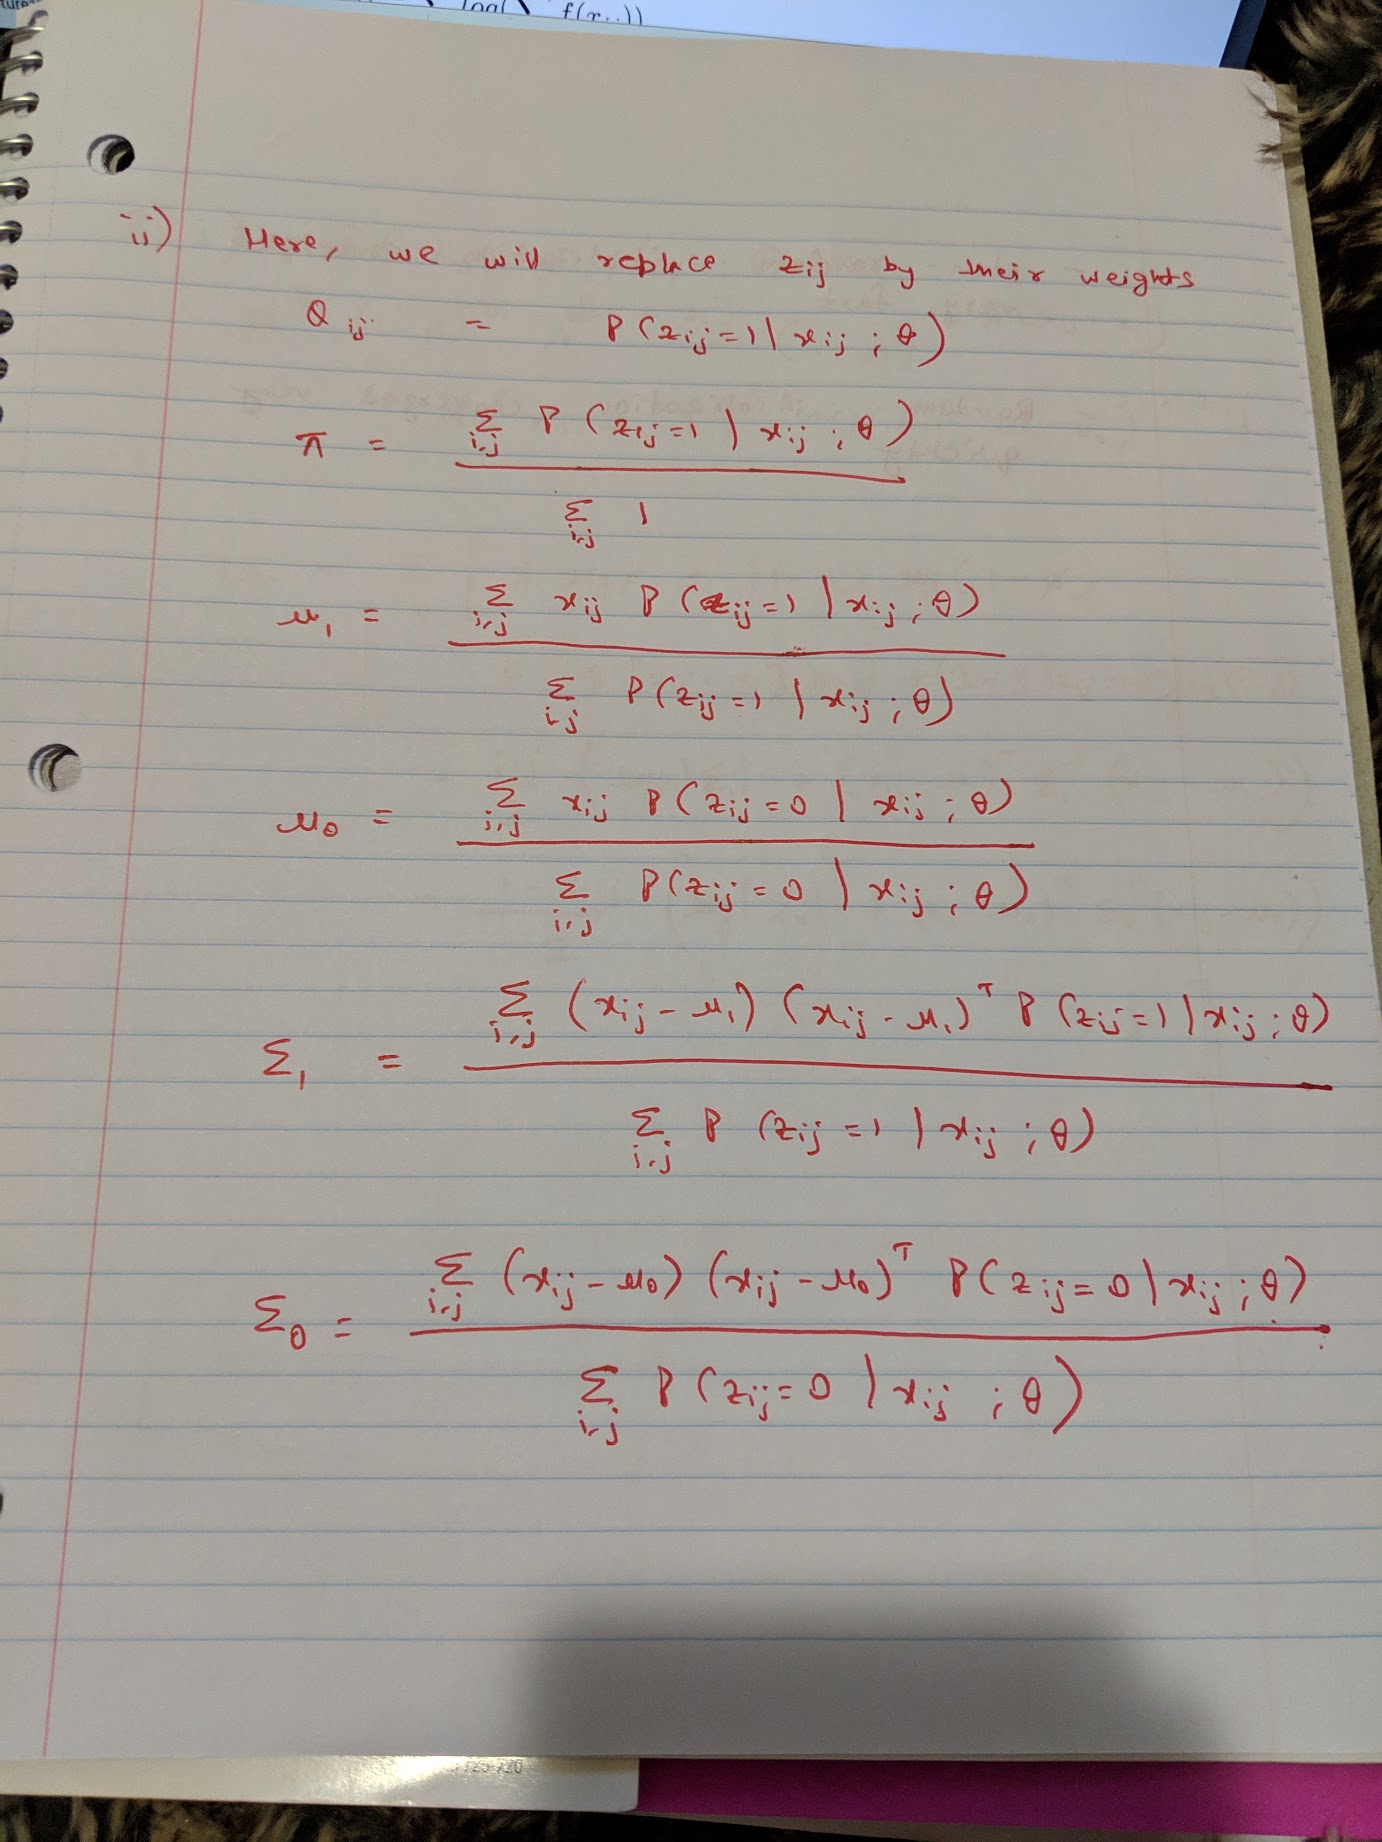 log( f(x..))
ii) Here, we will replace zij by their weights
Q ij = P(zij=1 | xij ; θ)
π = Σ i,j P(zij=1 | xij ; θ)
Σ i,j 1
μ1 = Σ i,j xij P(zij=1 | xij ; θ)
Σ i,j P(zij=1 | xij ; θ)
μ0 = Σ i,j xij P(zij=0 | xij ; θ)
Σ i,j P(zij=0 | xij ; θ)
Σ1 = Σ i,j (xij - μ1) (xij - μ1)ᵀ P(zij=1 | xij ; θ)
Σ i,j P(zij=1 | xij ; θ)
Σ0 = Σ i,j (xij - μ0) (xij - μ0)ᵀ P(zij=0 | xij ; θ)
Σ i,j P(zij=0 | xij ; θ)